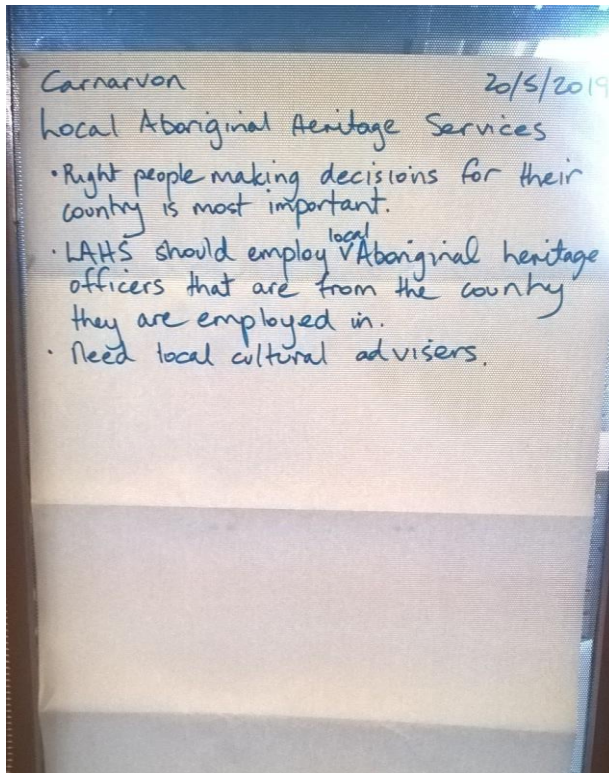 Carnarvon 20/5/2019
Local Aboriginal Heritage Services
• Right people making decisions for their
country is most important.
• LAHS should employ local Aboriginal heritage
officers that are from the country
they are employed in.
• Need local cultural advisers.